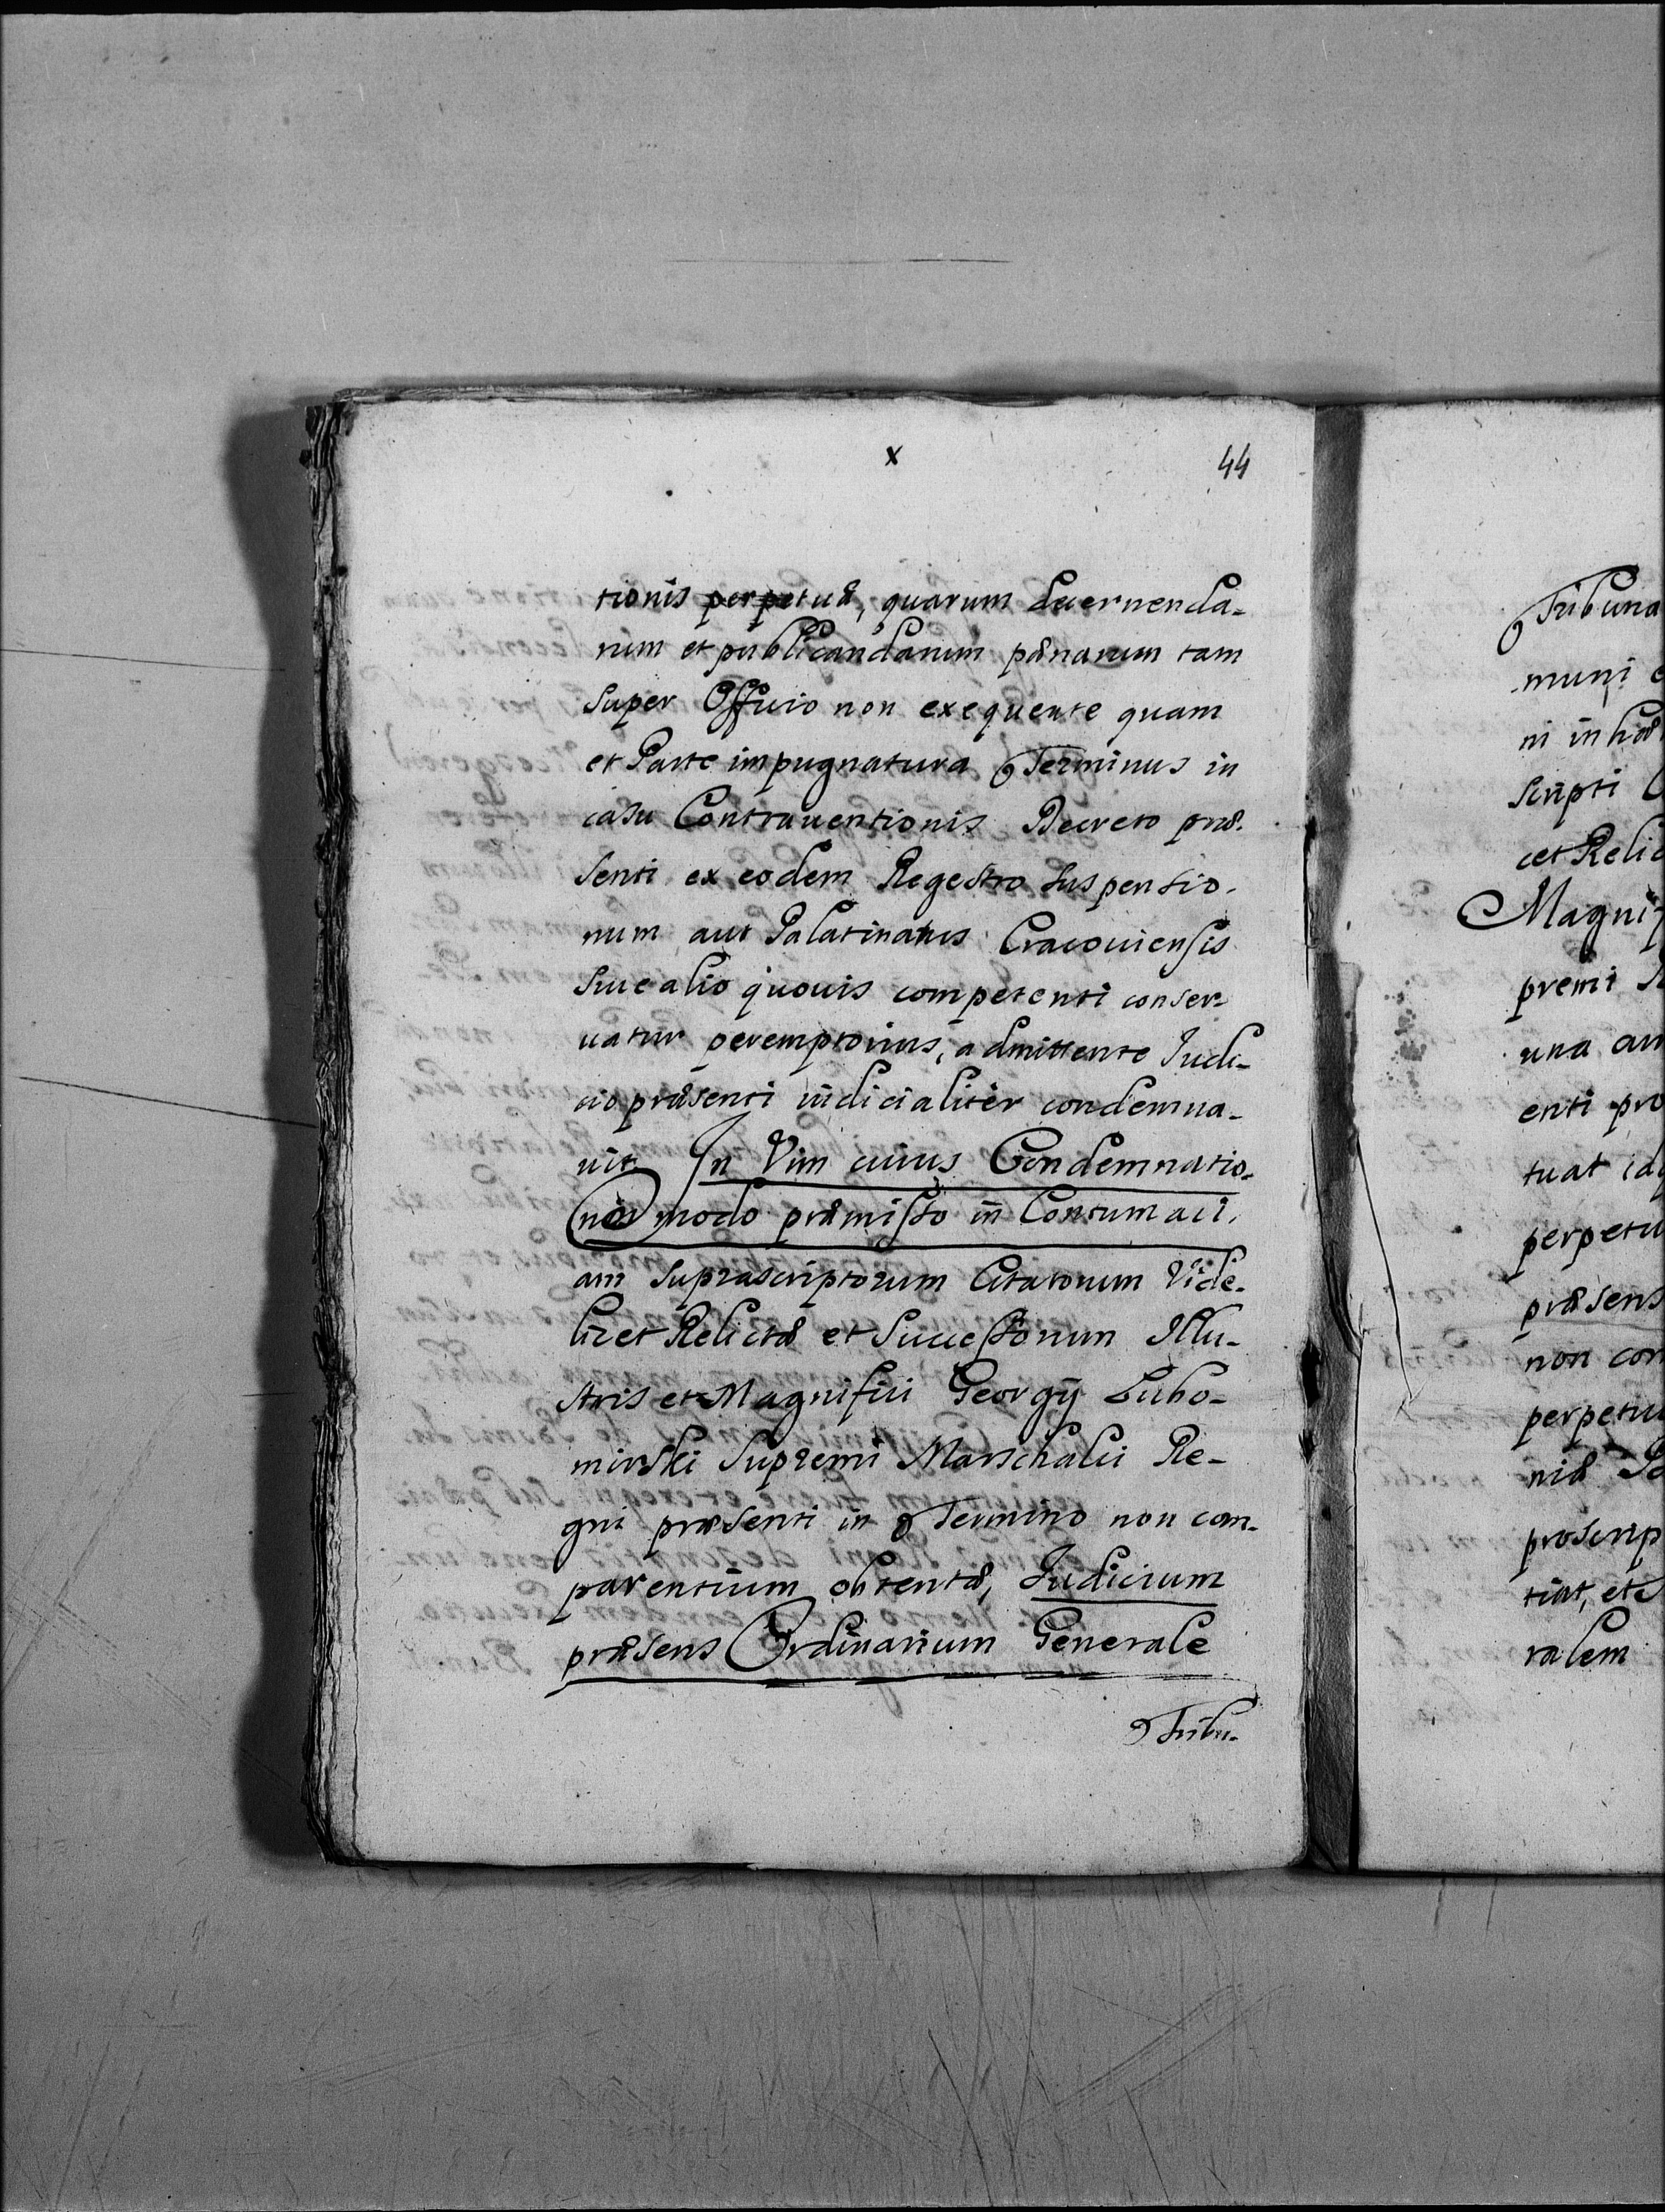 x 44
tionis perpetuæ, quarum decernenda-
rum et publicandarum pænarum tam
super Officio non exequente quam
et Parte impugnatura Terminus in
casu Contrauentionis Decreto præ-
senti ex eodem Regestro suspensio-
num aut Palatinatus Cracouiensis
siue alio quouis competenti conser-
uatur peremptorius, admittente Judi-
cio præsenti iudicialiter condemna-
uit. In Vim cuius Condemnatio-
nis modo præmisso in Contumaci-
am suprascriptorum Citatorum Vide-
licet Relictæ et Successorum Illu-
stris et Magnifici Georgij Lubo-
mirski Supremi Marschalci Re-
gni præsenti in Termino non com-
parentium obtentæ, Iudicium
præsens Ordinarium Generale
Tribu-
Tribuna
muni
ni in hæ
scripti
cet Relic
Magnif
premi
una
enti pro
tuat
perpetu
præsens
non com
perpetu
niæ
proscrip
tiat, et
ralem